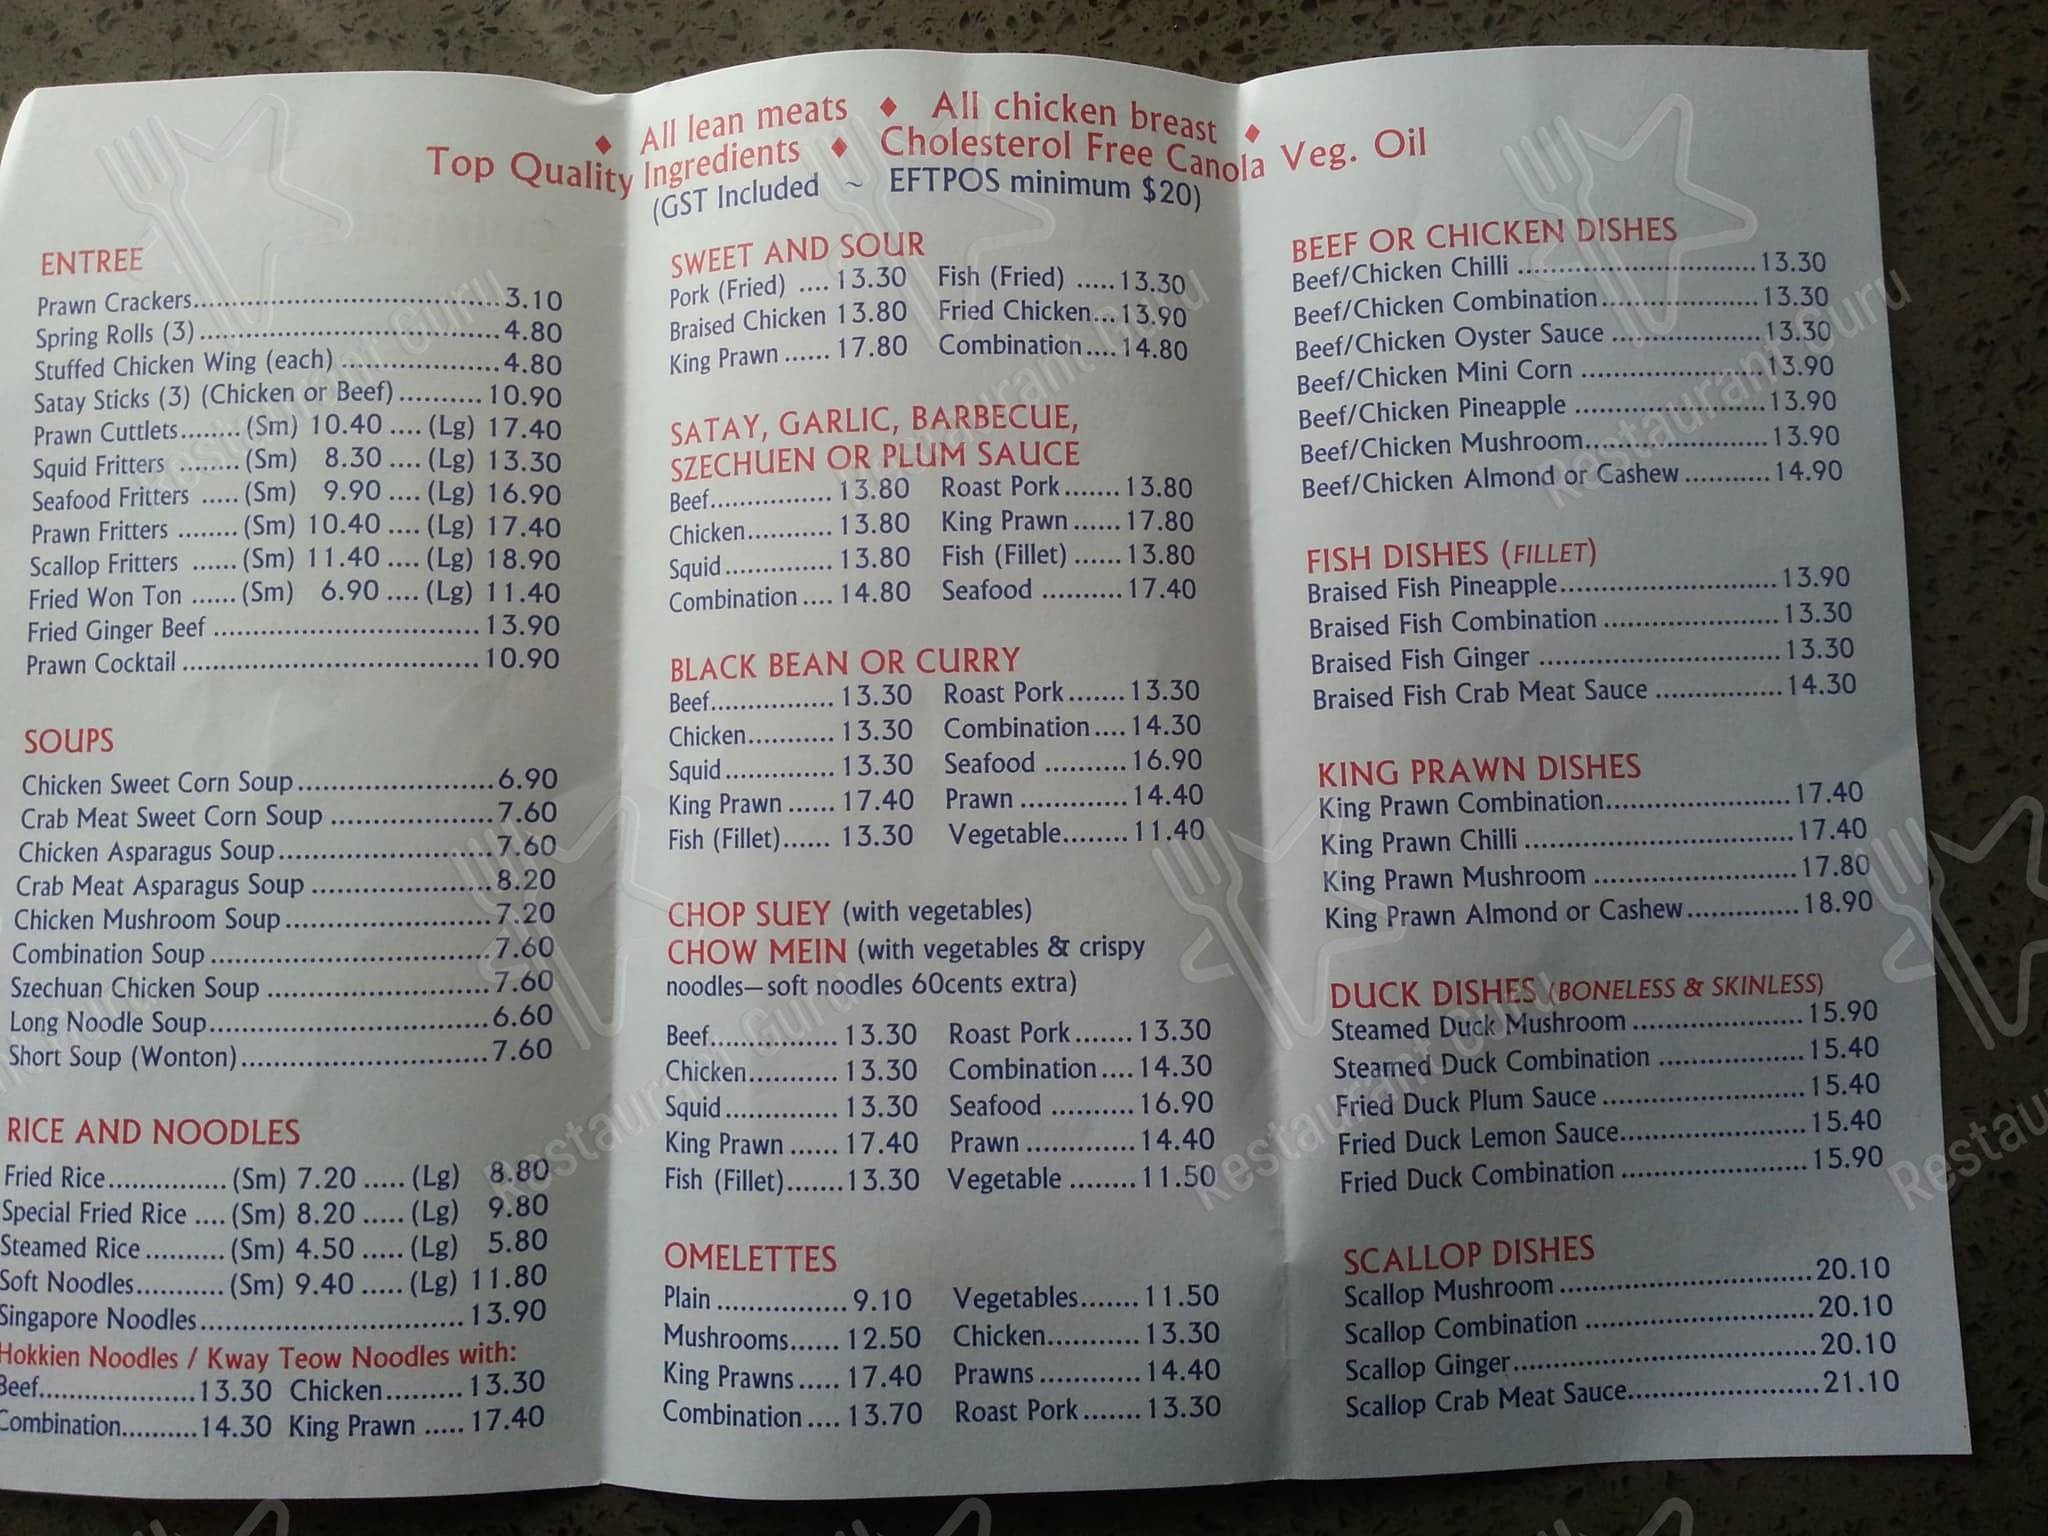 ◆ All lean meats ◆ All chicken breast ◆
Top Quality Ingredients ◆ Cholesterol Free Canola Veg. Oil
(GST Included ~ EFTPOS minimum $20)
ENTREE
Prawn Crackers.......3.10
Spring Rolls (3).......4.80
Stuffed Chicken Wing (each).......4.80
Satay Sticks (3) (Chicken or Beef).......10.90
Prawn Cuttlets........(Sm) 10.40 ....(Lg) 17.40
Squid Fritters ........(Sm) 8.30 ....(Lg) 13.30
Seafood Fritters .....(Sm) 9.90 ....(Lg) 16.90
Prawn Fritters ........(Sm) 10.40 ....(Lg) 17.40
Scallop Fritters ......(Sm) 11.40 ....(Lg) 18.90
Fried Won Ton ......(Sm) 6.90 ....(Lg) 11.40
Fried Ginger Beef .......13.90
Prawn Cocktail .......10.90
SOUPS
Chicken Sweet Corn Soup.......6.90
Crab Meat Sweet Corn Soup .......7.60
Chicken Asparagus Soup.......7.60
Crab Meat Asparagus Soup .......8.20
Chicken Mushroom Soup.......7.20
Combination Soup .......7.60
Szechuan Chicken Soup .......7.60
Long Noodle Soup.......6.60
Short Soup (Wonton).......7.60
RICE AND NOODLES
Fried Rice.......(Sm) 7.20 .....(Lg) 8.80
Special Fried Rice ....(Sm) 8.20 .....(Lg) 9.80
Steamed Rice ..........(Sm) 4.50 .....(Lg) 5.80
Soft Noodles...........(Sm) 9.40 .....(Lg) 11.80
Singapore Noodles.......13.90
Hokkien Noodles / Kway Teow Noodles with:
Beef.......13.30 Chicken..........13.30
Combination..........14.30 King Prawn .....17.40
SWEET AND SOUR
Pork (Fried) ....13.30 Fish (Fried) .....13.30
Braised Chicken 13.80 Fried Chicken...13.90
King Prawn ......17.80 Combination....14.80
SATAY, GARLIC, BARBECUE,
SZECHUEN OR PLUM SAUCE
Beef.......13.80 Roast Pork.......13.80
Chicken...........13.80 King Prawn ......17.80
Squid.......13.80 Fish (Fillet) ......13.80
Combination ....14.80 Seafood ..........17.40
BLACK BEAN OR CURRY
Beef.......13.30 Roast Pork.......13.30
Chicken...........13.30 Combination....14.30
Squid.......13.30 Seafood ..........16.90
King Prawn ......17.40 Prawn .......14.40
Fish (Fillet)......13.30 Vegetable........11.40
CHOP SUEY (with vegetables)
CHOW MEIN (with vegetables & crispy
noodles—soft noodles 60cents extra)
Beef.......13.30 Roast Pork.......13.30
Chicken...........13.30 Combination....14.30
Squid.......13.30 Seafood ..........16.90
King Prawn ......17.40 Prawn .......14.40
Fish (Fillet).......13.30 Vegetable ........11.50
OMELETTES
Plain .......9.10 Vegetables.......11.50
Mushrooms......12.50 Chicken...........13.30
King Prawns.....17.40 Prawns .......14.40
Combination ....13.70 Roast Pork.......13.30
BEEF OR CHICKEN DISHES
Beef/Chicken Chilli .......13.30
Beef/Chicken Combination.......13.30
Beef/Chicken Oyster Sauce .......13.30
Beef/Chicken Mini Corn .......13.90
Beef/Chicken Pineapple .......13.90
Beef/Chicken Mushroom.......13.90
Beef/Chicken Almond or Cashew...........14.90
FISH DISHES (FILLET)
Braised Fish Pineapple.......13.90
Braised Fish Combination .......13.30
Braised Fish Ginger .......13.30
Braised Fish Crab Meat Sauce .......14.30
KING PRAWN DISHES
King Prawn Combination.......17.40
King Prawn Chilli .......17.40
King Prawn Mushroom .......17.80
King Prawn Almond or Cashew.......18.90
DUCK DISHES (BONELESS & SKINLESS)
Steamed Duck Mushroom .......15.90
Steamed Duck Combination .......15.40
Fried Duck Plum Sauce .......15.40
Fried Duck Lemon Sauce.......15.40
Fried Duck Combination .......15.90
SCALLOP DISHES
Scallop Mushroom .......20.10
Scallop Combination .......20.10
Scallop Ginger.......20.10
Scallop Crab Meat Sauce.......21.10
Restaurant Guru